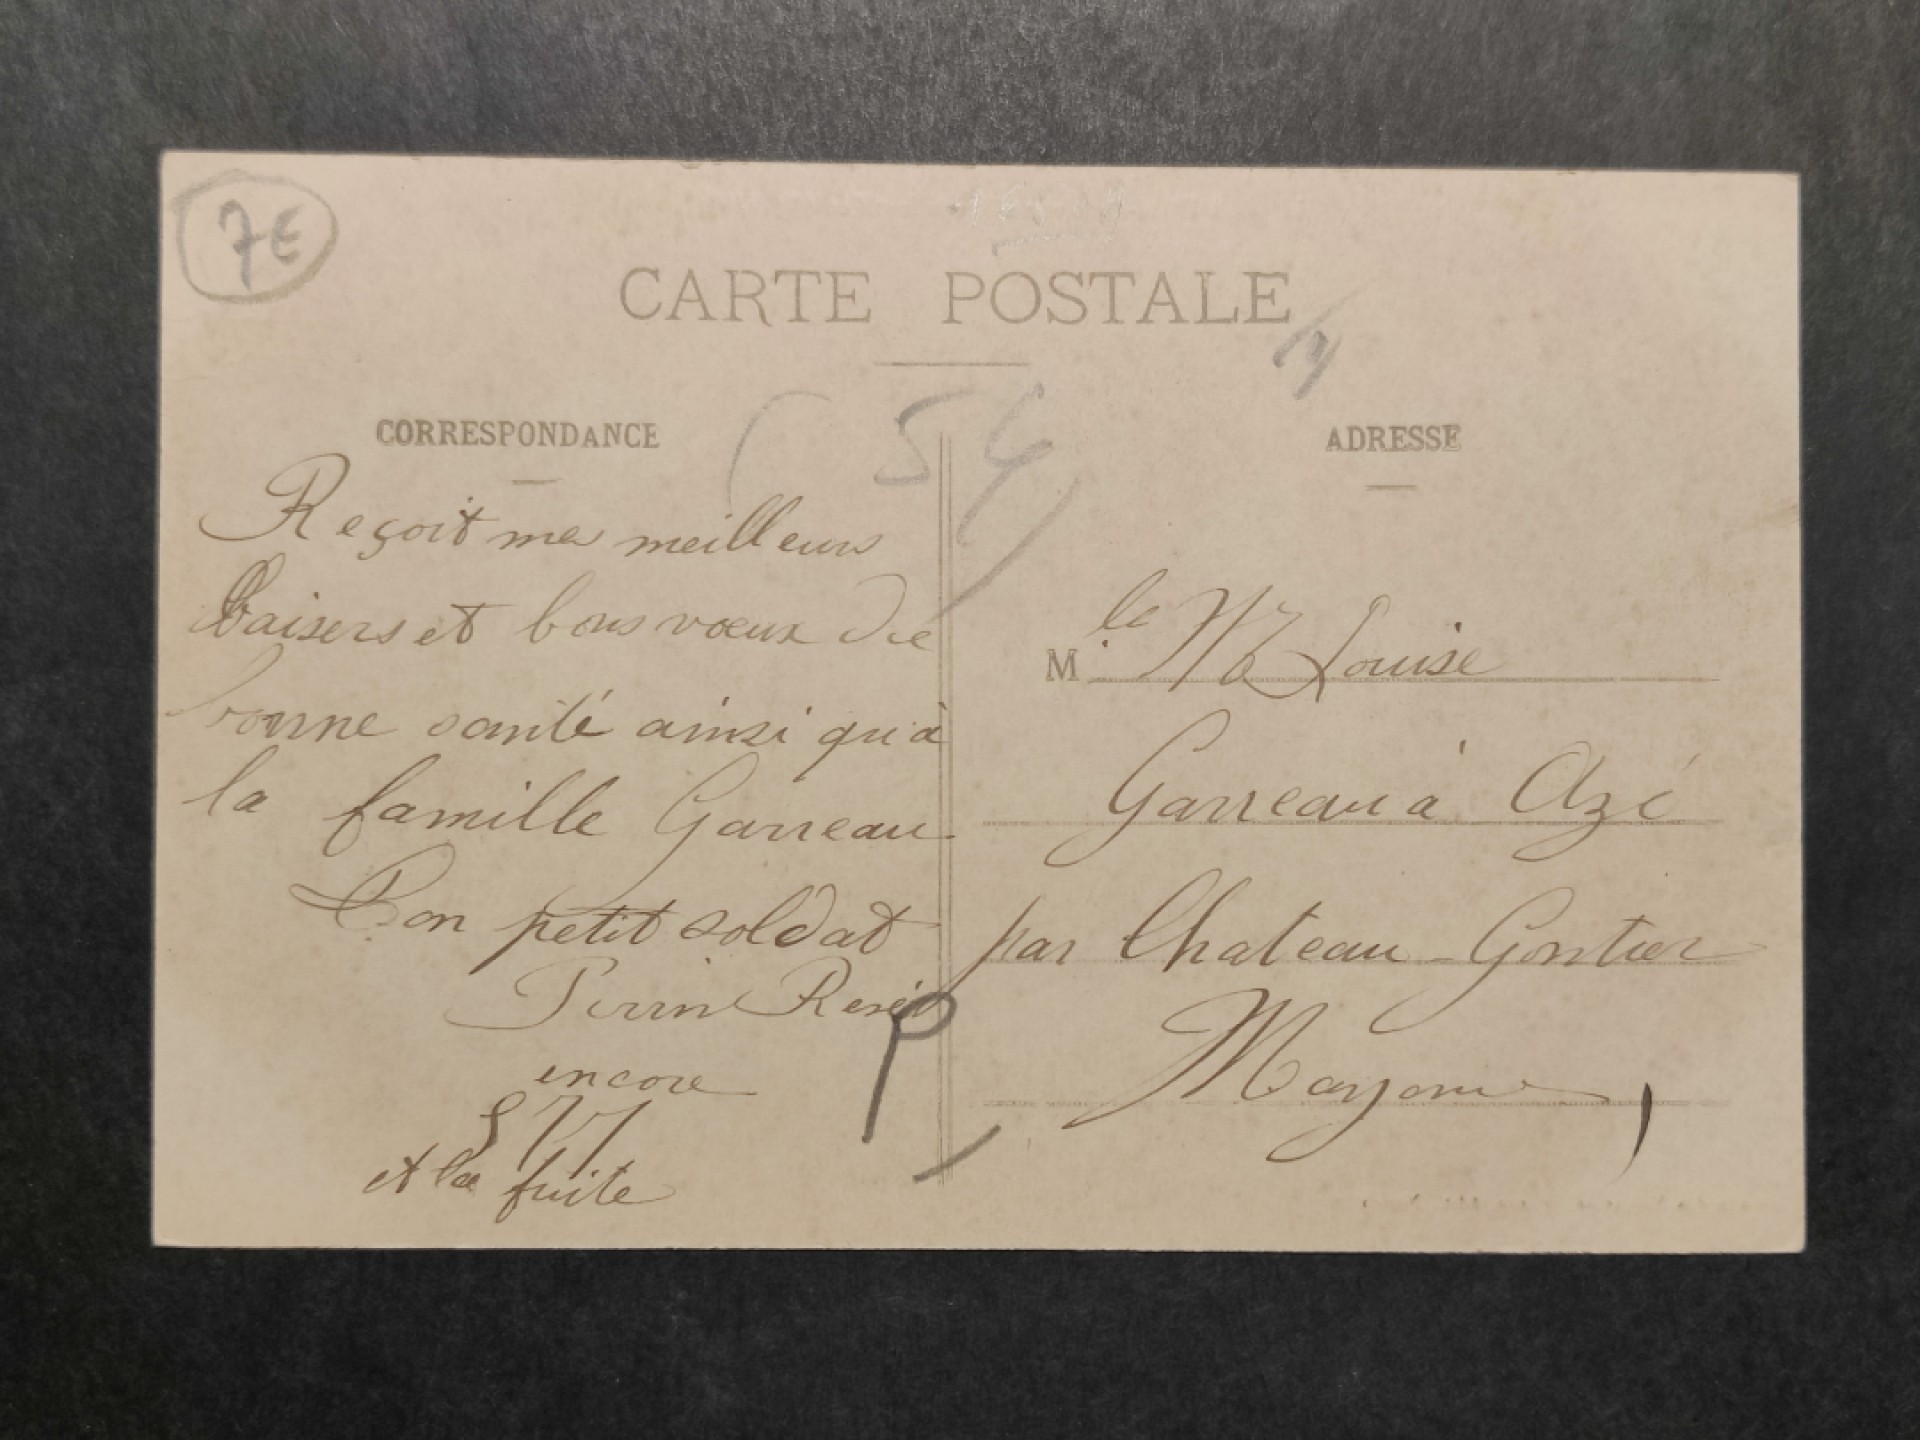 7€
CARTE POSTALE
(54)
CORRESPONDANCE
Reçoit mes meilleurs
baisers et bons voeux de
bonne santé ainsi qu'à
la famille Garreau
Ton petit soldat
Perrin René
encore
577
et la fuite
P
ADRESSE
M. le Louise
Garreau à Azé
par Chateau-Gontier
Mayenne